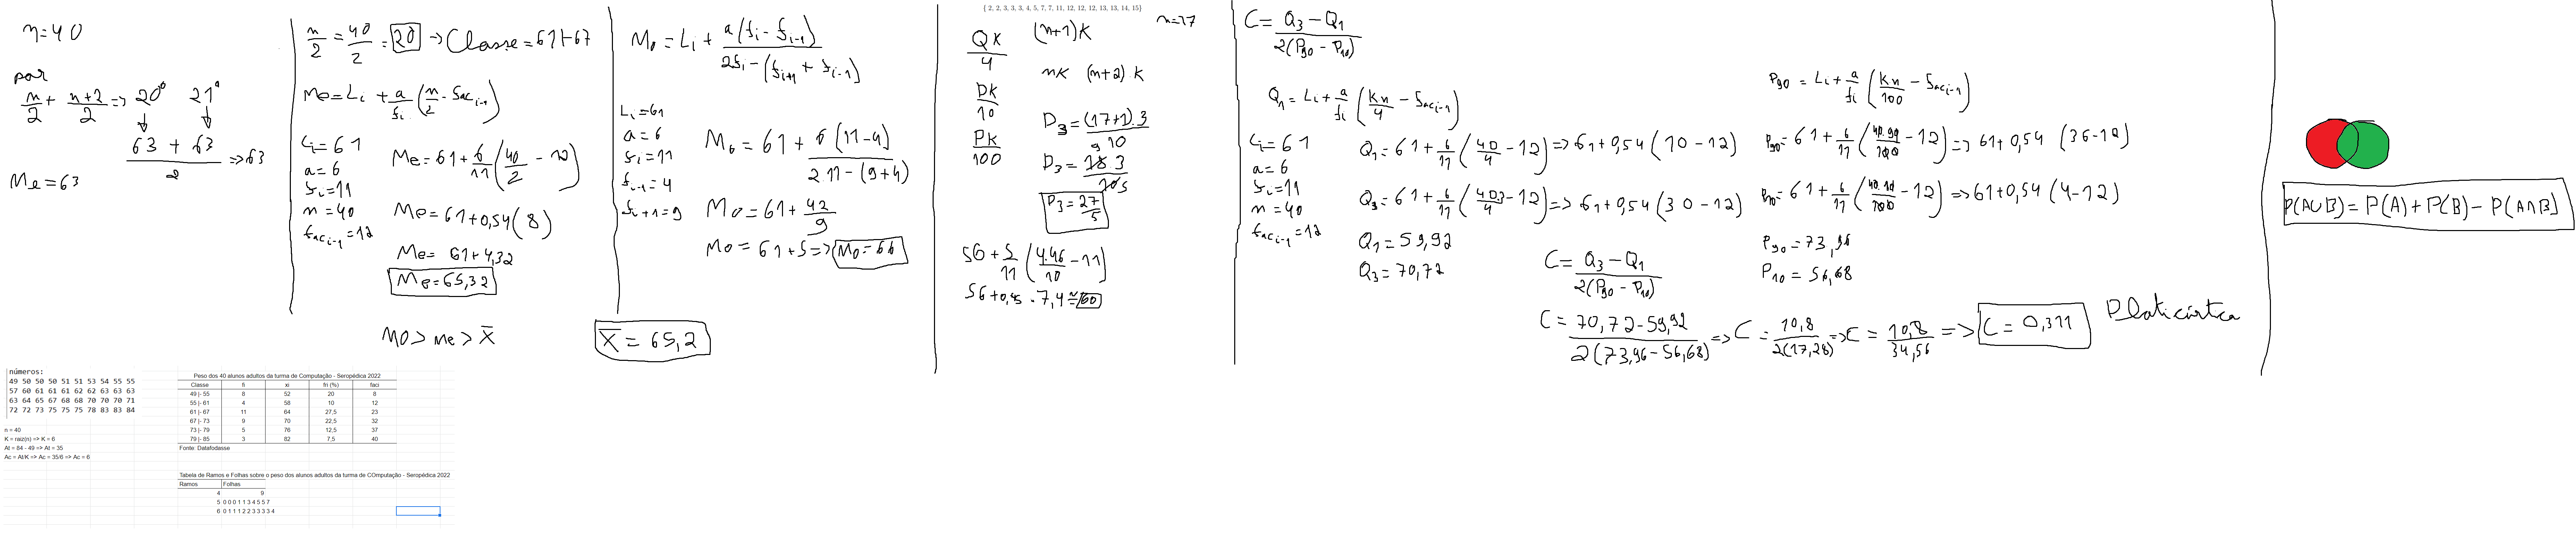 n=40
par
n/2 + n+2/2 => 20° 21°
63 + 63 / 2 => 63
Me=63
n/2 = 40/2 = 20 → Classe = 61|-67
Me = Li + a/fi (n/2 - fac i-1)
Li = 61
a = 6
fi = 11
n = 40
fac i-1 = 12
Me = 61 + 6/11 (40/2 - 12)
Me = 61 + 0,54 (8)
Me = 61 + 4,32
Me = 65,32
M0 > Me > X̄
Mo = Li + a(fi - fi-1) / 2fi - (fi+1 + fi-1)
Li = 61
a = 6
fi = 11
fi-1 = 4
fi+1 = 9
Mo = 61 + 6(11-4) / 2.11 - (9+4)
Mo = 61 + 42/9
Mo = 61 + 5 => Mo = 66
X̄ = 65,2
{ 2, 2, 3, 3, 3, 4, 5, 7, 7, 11, 12, 12, 12, 13, 13, 14, 15}
n=17
QK/4
DK/10
PK/100
(n+1)K
nK (n+2).K
D3 = (17+1).3 / 10
D3 = 18.3 / 10 5
D3 = 27/5
56 + 5/11 (4.46/10 - 11)
56 + 0,45 . 7,4 ≈ 60
C = Q3 - Q1 / 2(P90 - P10)
Q1 = Li + a/fi (Kn/4 - fac i-1)
Li = 61
a = 6
fi = 11
n = 40
fac i-1 = 12
Q1 = 61 + 6/11 (40/4 - 12) => 61 + 0,54 (10 - 12)
Q3 = 61 + 6/11 (40.3/4 - 12) => 61 + 0,54 (30 - 12)
Q1 = 59,92
Q3 = 70,72
P90 = Li + a/fi (Kn/100 - fac i-1)
P90 = 61 + 6/11 (40.90/100 - 12) => 61 + 0,54 (36 - 12)
P10 = 61 + 6/11 (40.10/100 - 12) => 61 + 0,54 (4 - 12)
P90 = 73,96
P10 = 56,68
C = Q3 - Q1 / 2(P90 - P10)
C = 70,72 - 59,92 / 2(73,96 - 56,68) => C = 10,8 / 2(17,28) => C = 10,8 / 34,56 => C = 0,311
Platicúrtica
P(A∪B) = P(A) + P(B) - P(A∩B)
números:
49 50 50 50 51 51 53 54 55 55
57 60 61 61 61 62 62 63 63 63
63 64 65 67 68 68 70 70 70 71
72 72 73 75 75 75 78 83 83 84
n = 40
K = raiz(n) => K = 6
At = 84 - 49 => At = 35
Ac = At/K => Ac = 35/6 => Ac = 6
Peso dos 40 alunos adultos da turma de Computação - Seropédica 2022
Classe fi xi fri (%) faci
49 |- 55 8 52 20 8
55 |- 61 4 58 10 12
61 |- 67 11 64 27,5 23
67 |- 73 9 70 22,5 32
73 |- 79 5 76 12,5 37
79 |- 85 3 82 7,5 40
Fonte: Datafodasse
Tabela de Ramos e Folhas sobre o peso dos alunos adultos da turma de COmputação - Seropédica 2022
Ramos Folhas
4 9
5 0 0 0 1 1 3 4 5 5 7
6 0 1 1 1 2 2 3 3 3 3 4